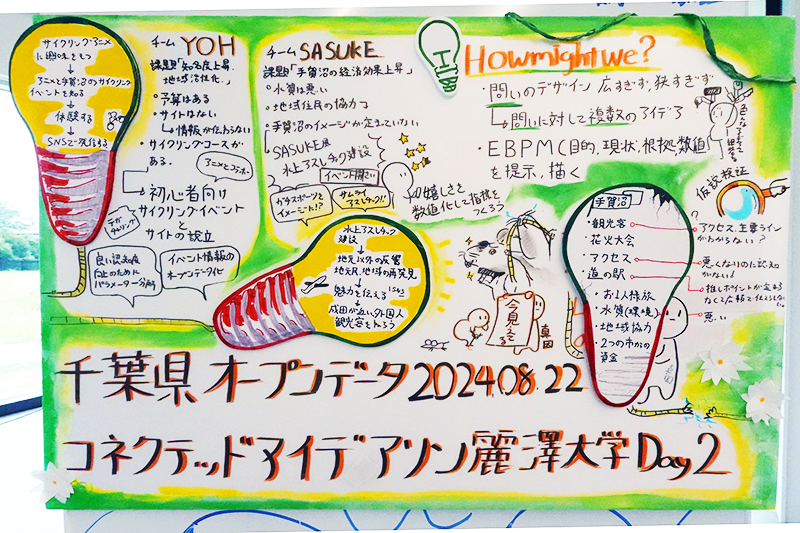 サイクリング・アニメ
に興味をもつ
アニメと手賀沼のサイクリング
イベントを知る
体験する
SNSで発信する
チーム YOH
課題「知名度上昇、
地域活性化」
・予算はある
・サイトはない
→情報が伝わらない
・サイクリングコースが
ある.
アニメとコラボ
→初心者向け
サイクリングイベント
と
サイトの設立
良い認知度
向上のために
パラメーター分析
イベント情報の
オープンデータ化
チーム SASUKE
課題「手賀沼の経済効果上昇」
・水質は悪い
・地域住民の協力
・手賀沼のイメージが定まっていない
→SASUKE風
水上アスレチック建設
イベント開さい
ガチスポーツを
イメージ!?
サムライ
アスレチック!!
嬉しさを
数値化して指標を
つくろう
水上アスレチック
建設
地元以外の反響
地元民、地域の再発見
魅力を伝える
成田が近い外国人
観光客をとろう
Howmightwe?
・問いのデザイン 広すぎず、狭すぎず
→問いに対して複数のアイデア
・EBPM(目的、現状、根拠、数値)
を提示、描く
仮説検証
今見えてる
真因
手賀沼
・観光客
・花火大会
・アクセス
・道の駅
・お1人様旅
・水質(環境)
・地域協力
・2つの市からの
資金
アクセス、主要ライン
がわからない?
悪い
千葉県 オープンデータ 2024.08.22
コネクテッドアイデアソン 麗澤大学 Day2